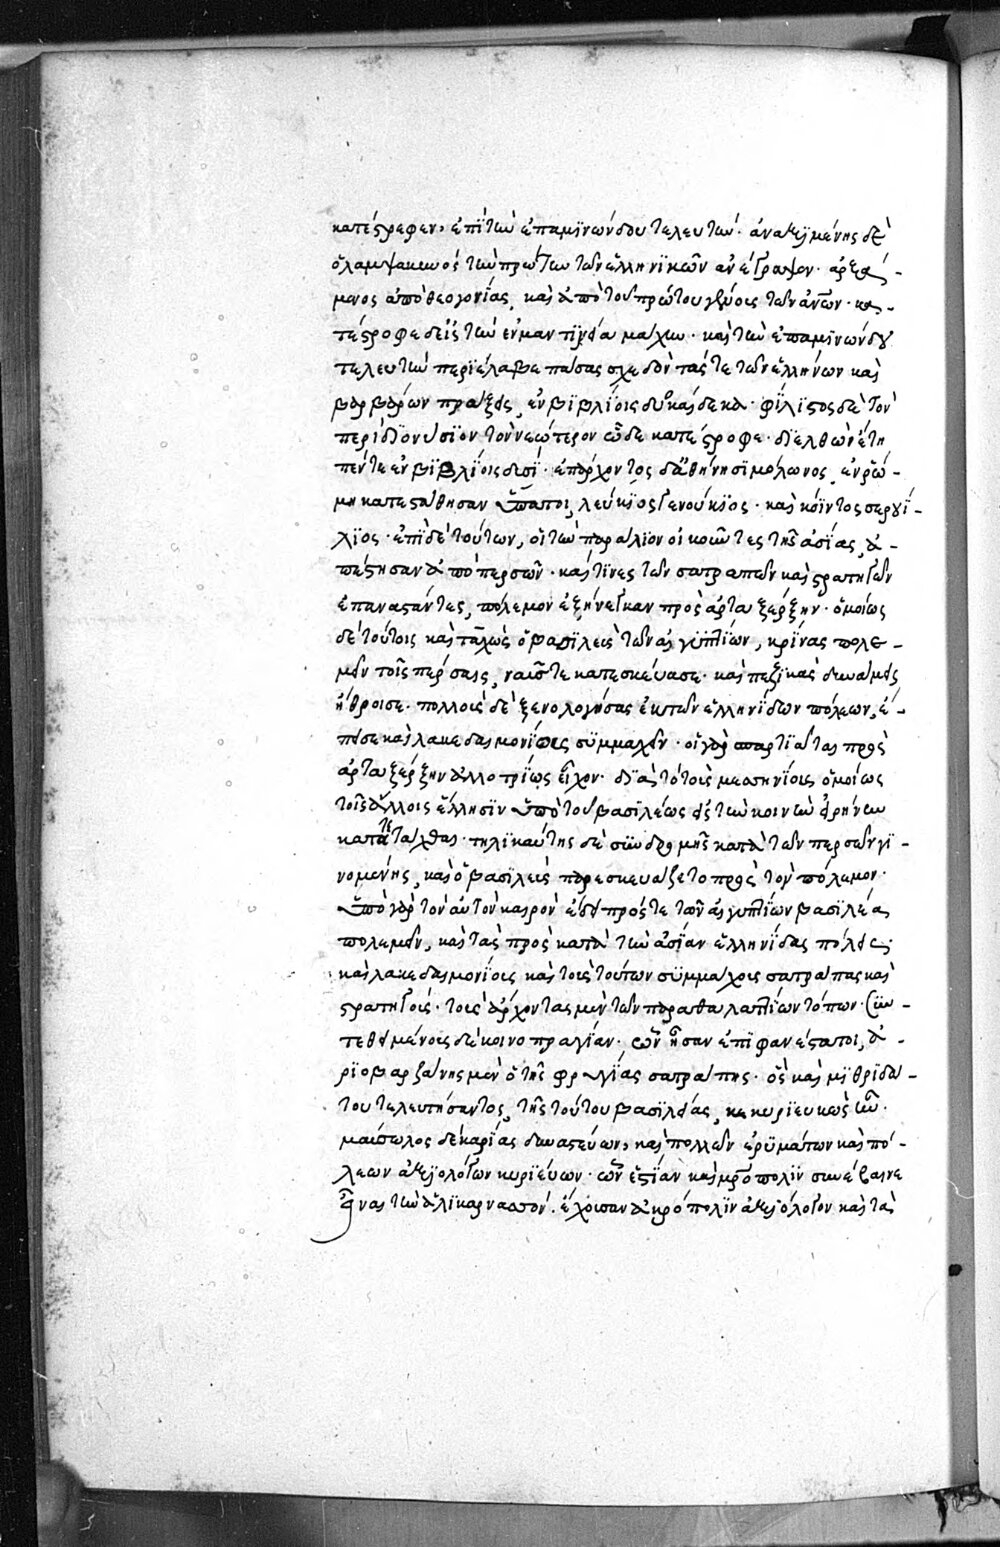 κατέστρεφεν, ἐπὶ τὴν ἐπαμϊνώνδου τελευτήν· ἀναξϊμένης δὲ
ὁ λαμψακηνὸς τὴν πρώτην τῶν ἑλληνϊκῶν ἀνέγραψεν· ἀρξά-
μενος ἀπὸ θεογονίας, καὶ ἀπὸ τοῦ πρώτου γένους τῶν ἀνων· κα-
τέστροφε δὲ εἰς τὴν ἐν μαντινεία μάχην· καὶ τὴν ἐπαμϊνώνδου
τελευτὴν περϊέλαβε πάσας σχεδὸν τάς τε τῶν ἑλλήνων καὶ
βαρβάρων πράξεις, ἐν βϊβλίοις δυοκαίδεκα· φίλϊστος δὲ τὸν
περὶ δϊονύσϊον τὸν νεώτερον ὧδε κατέστροφε· δϊελθὼν ἔτη
πέντε ἐν βϊβλίοις δυσί· ἐπ' ἄρχοντος δ' ἀθήνησϊ μόλωνος, ἐν ῥώ-
μη κατεστάθησαν ὕπατοι, λεύκϊος γενούκϊος· καὶ κόϊντος σερουΐ-
λϊος· ἐπὶ δὲ τούτων, οἱ τὴν παράλϊον οἰκοῦντες τῆς ἀσίας, ἀ-
πέστησαν ἀπὸ περσῶν· καί τϊνες τῶν σατραπῶν καὶ στρατηγῶν
ἐπαναστάντες, πόλεμον ἐξήνεγκαν πρὸς ἀρταξέρξην· ὁμοίως
δὲ τούτοις καὶ ταχὼς ὁ βασϊλεὺς τῶν αἰγυπτίων, κρίνας πολε-
μεῖν τοῖς πέρσαις, ναῦς τε κατεσκεύασε· καὶ πεζϊκὰς δυνάμεις
ἤθροισε· πολλοὺς δὲ ξενολογήσας ἐκ τῶν ἑλληνΐδων πόλεων, ἔ-
πεισε καὶ λακεδαιμονίους συμμαχεῖν· οἱ γὰρ σπαρτϊᾶται πρὸς
ἀρταξέρξην ἀλλοτρίως εἶχον· δϊὰ τὸ τοὺς μεσσηνίους ὁμοίως
τοῖς ἄλλοις ἕλλησϊν ὑπὸ τοῦ βασϊλέως εἰς τὴν κοινὴν εἰρήνην
κατατετάχθαι· τηλϊκαύτης δὲ συνδρομῆς κατὰ τῶν περσῶν γϊ-
νομένης, καὶ ὁ βασϊλεὺς παρεσκευάζετο πρὸς τὸν πόλεμον·
ὑπὸ γὰρ τὸν αὐτὸν καιρὸν ἔδει πρός τε τῶν αἰγυπτίων βασϊλέα
πολεμεῖν, καὶ τὰς πρὸς κατὰ τὴν ἀσίαν ἑλληνΐδας πόλεις·
καὶ λακεδαιμονίους καὶ τοὺς τούτων συμμάχους σατράπας καὶ
στρατηγούς· τοὺς ἄρχοντας μὲν τῶν παραθαλαττίων τόπων· συν-
τεθειμένους δὲ κοινοπραγίαν· ὧν ἦσαν ἐπϊφανέστατοι, ἀ-
ρϊοβαρζάνης μὲν ὁ τῆς φρυγίας σατράπης· ὃς καὶ μϊθρϊδά-
του τελευτήσαντος, τῆς τούτου βασϊλείας, κεκυρϊευκὼς ἦν·
μαύσωλος δὲ καρίας δυναστεύων, καὶ πολλῶν ἐρυμάτων καὶ πό-
λεων ἀξϊολόγων κυρϊεύων· ὧν ἑστίαν καὶ μρόπολϊν συνέβαινε
εἶναι τὴν ἁλϊκαρνασσόν· ἔχουσαν ἀκρόπολϊν ἀξϊόλογον καὶ τὰ